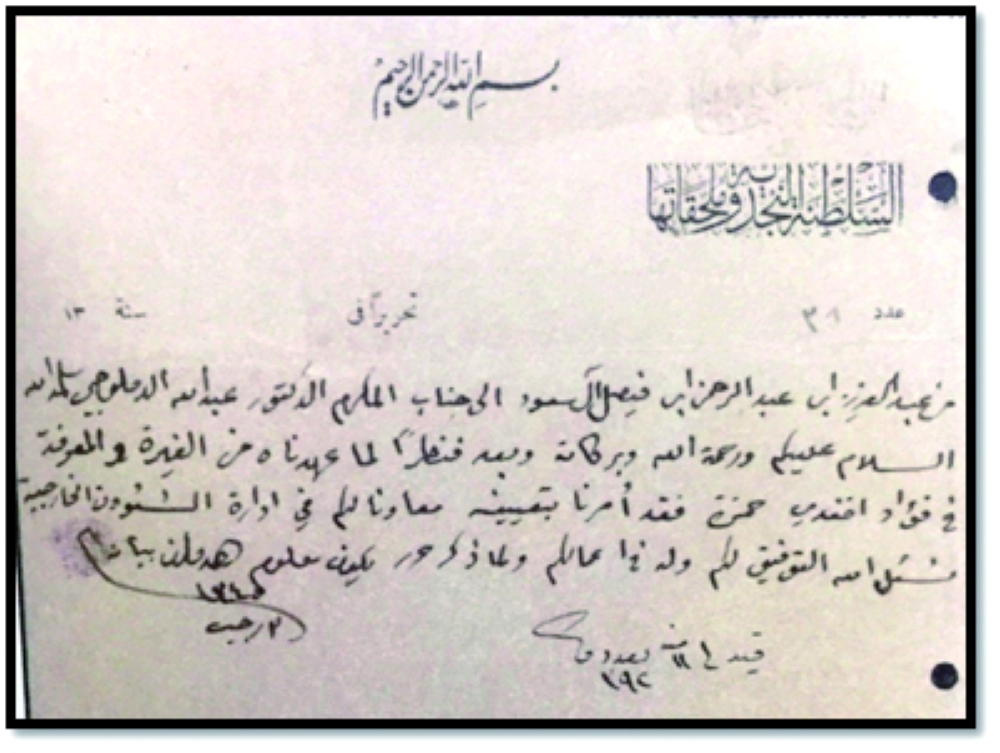 بسم الله الرحمن الرحيم
السلطنة النجدية وملحقاتها
عدد ٣١ تحريراً في سنة ١٣
من عبد العزيز ابن عبد الرحمن ابن فيصل آل سعود الى جناب المكرم الدكتور عبد الله الدملوجي سلمه الله
السلام عليكم ورحمة الله وبركاته وبعد فنظراً لما عهدناه من الغيرة والمعرفة
في فؤاد افندي حمزة فقد أمرنا بتعيينه معاونا لكم في ادارة الشؤون الخارجية
نسئل الله التوفيق لكم وله في اعمالكم ولما ذكر حرر يكون معلوم
١٣٤٥
رجب
قيد في ١١ منه بعدد
٢٩٢